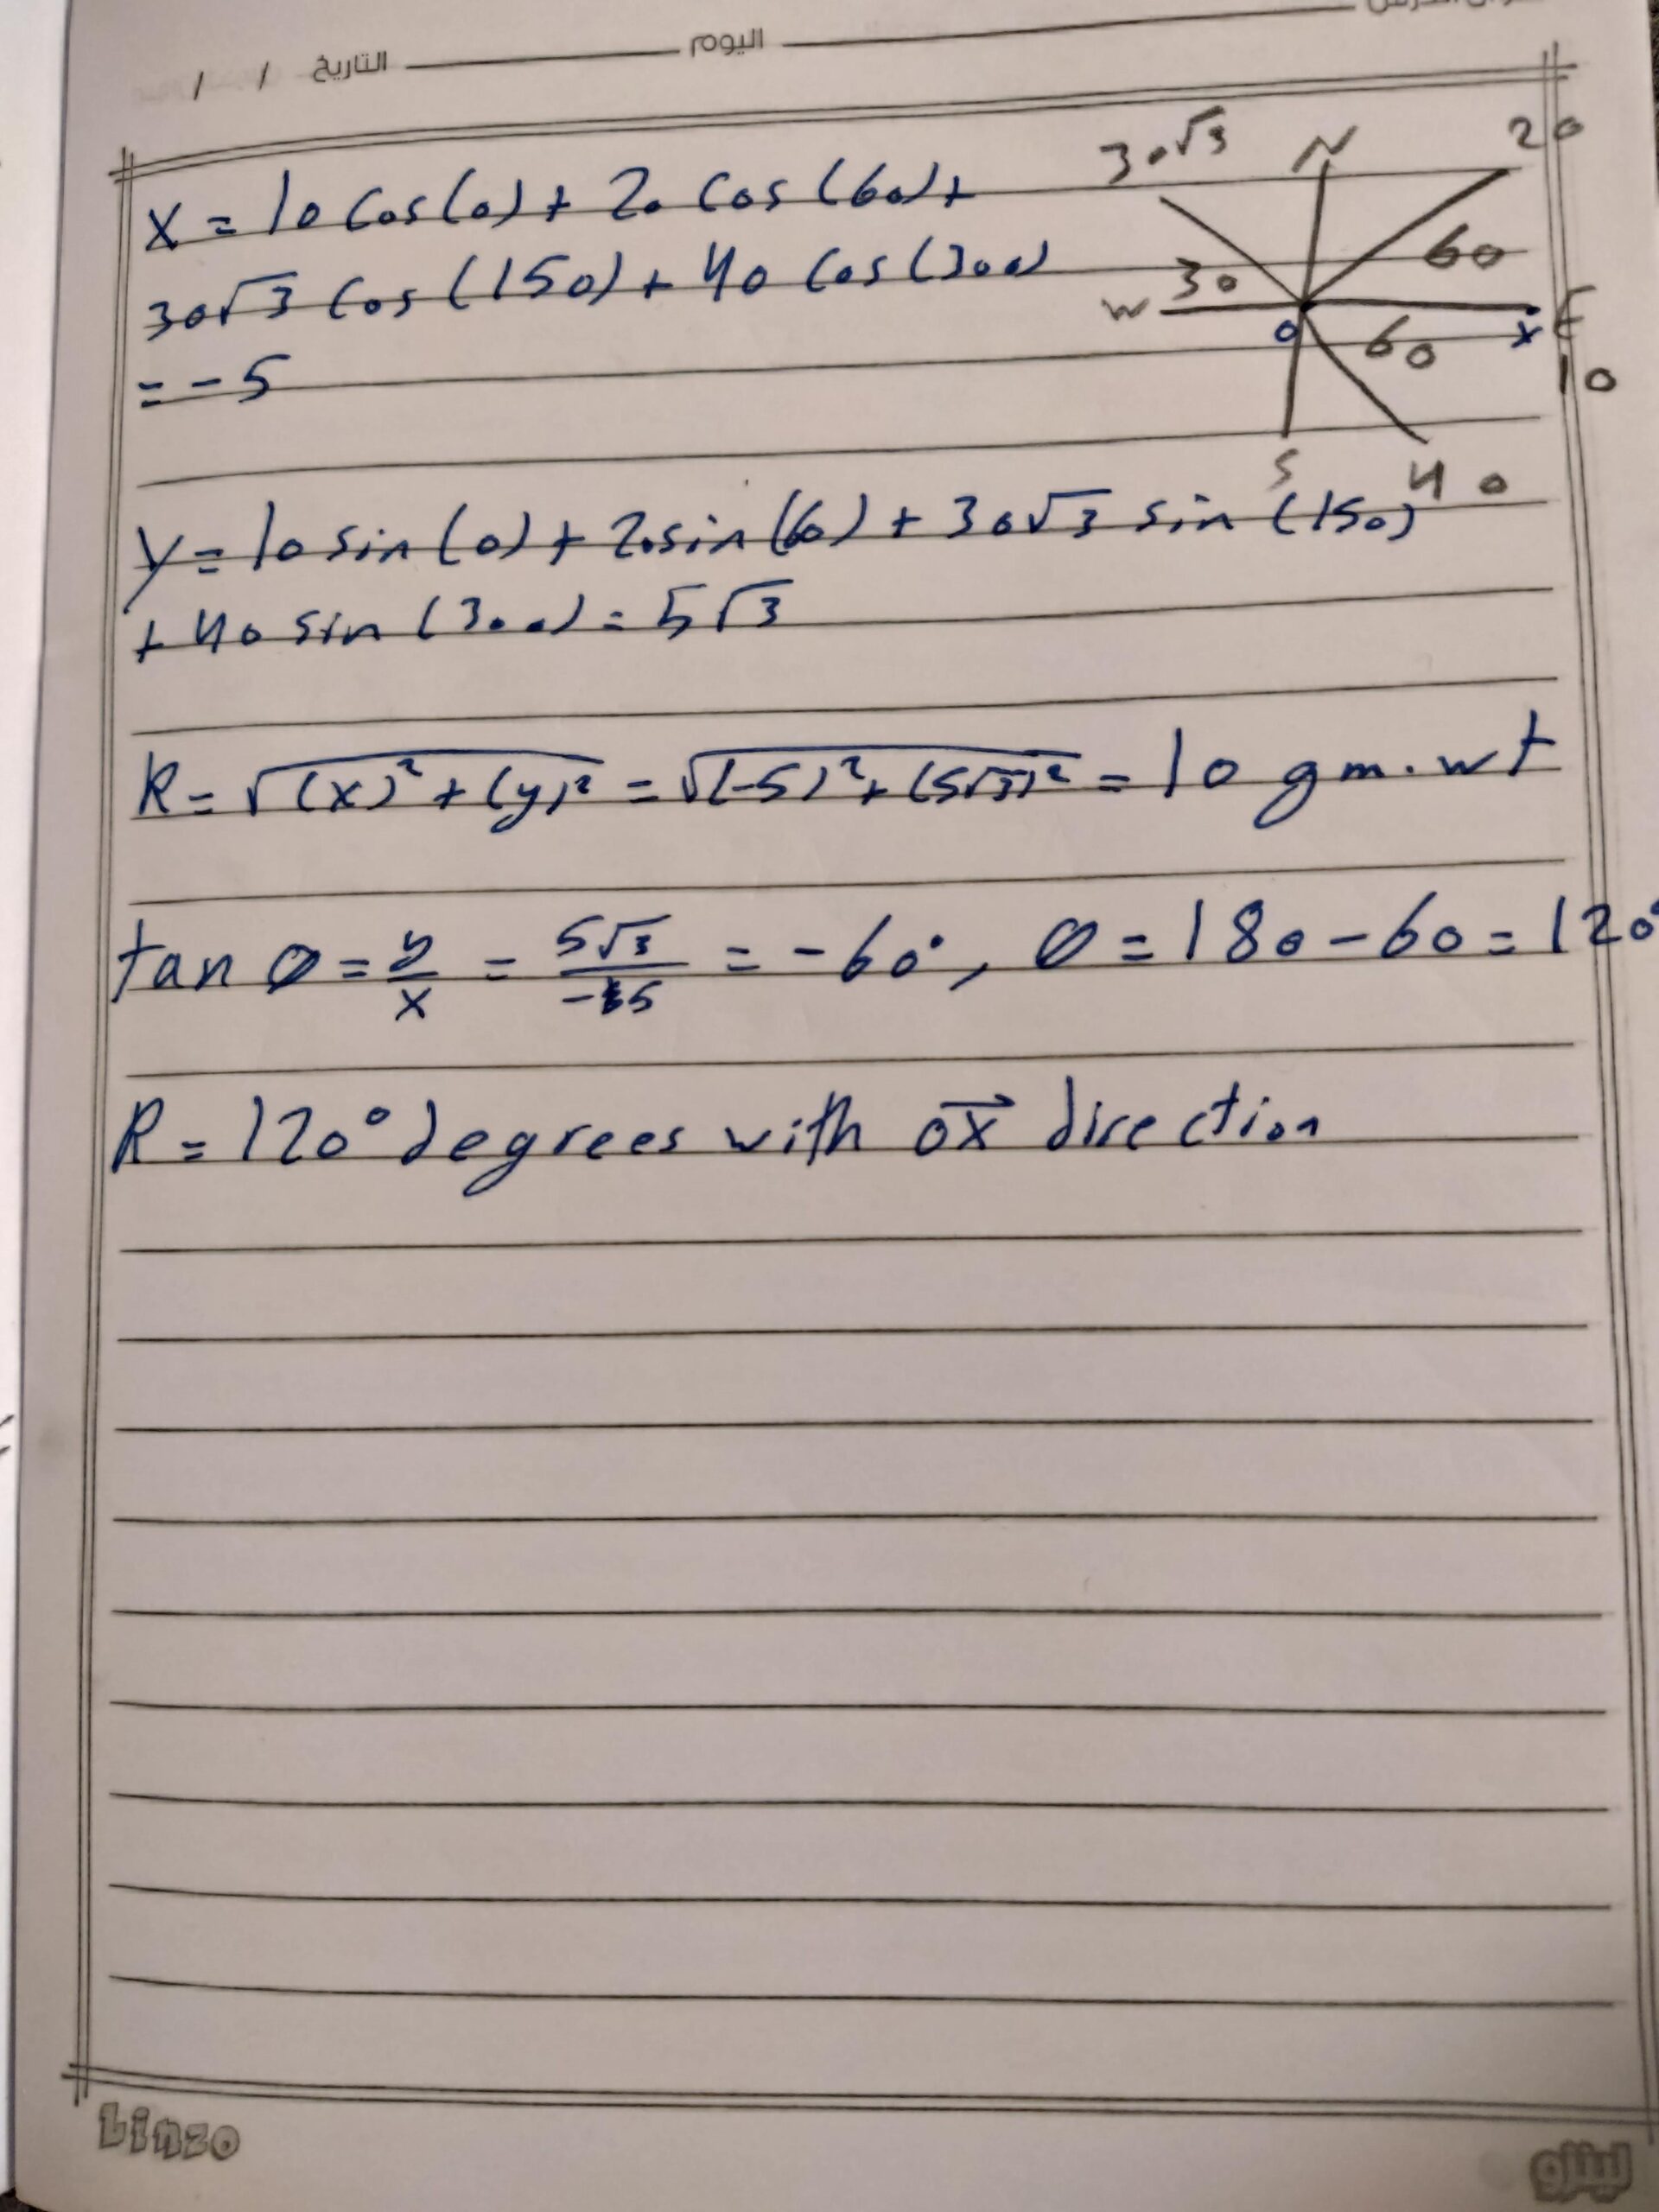 اليوم
التاريخ / /
30√3 N 20
30 60
W O X E
60 10
S 40
X = 10 Cos(0) + 20 Cos(60) +
30√3 Cos(150) + 40 Cos(300)
= -5
y = 10 sin(0) + 20 sin(60) + 30√3 sin(150)
+ 40 sin(300) = 5√3
R = √(x)² + (y)² = √(-5)² + (5√3)² = 10 gm.wt
tan θ = y/x = 5√3/-5 = -60°, θ = 180 - 60 = 120°
R = 120° degrees with ox→ direction
Linzo
لينزو